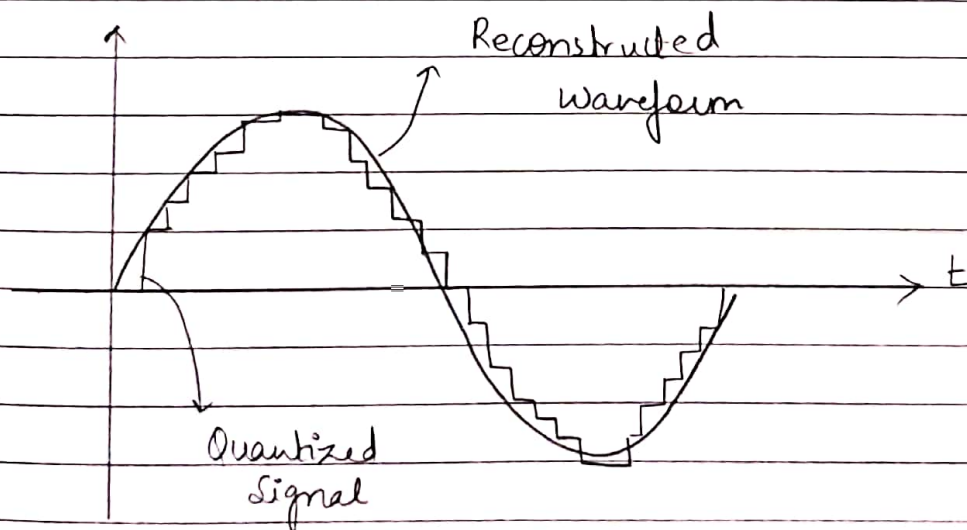 Reconstructed
Waveform
t
Quantized
Signal